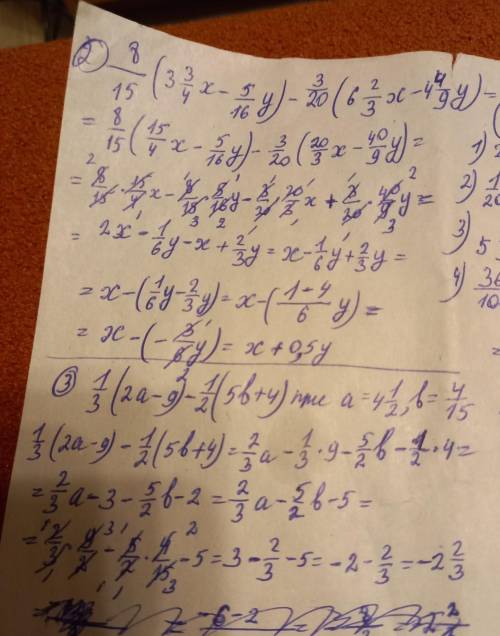 ② 8/15 (3 3/4 x - 5/16 y) - 3/20 (6 2/3 x - 4 4/9 y) =
= 8/15 (15/4 x - 5/16 y) - 3/20 (20/3 x - 40/9 y) =
= 8/15 · 15/4 x - 8/15 · 5/16 y - 3/20 · 20/3 x + 3/20 · 40/9 y =
= 2x - 1/6 y - x + 2/3 y = x - 1/6 y + 2/3 y =
= x - (1/6 y - 2/3 y) = x - (1-4/6 y) =
= x - (- 3/6 y) = x + 0,5y
③ 1/3 (2a - 9) - 1/2 (5b + 4) при a = 4 1/2, b = 4/15
1/3 (2a - 9) - 1/2 (5b + 4) = 2/3 a - 1/3 · 9 - 5/2 b - 1/2 · 4 =
= 2/3 a - 3 - 5/2 b - 2 = 2/3 a - 5/2 b - 5 =
= 2/3 · 9/2 - 5/2 · 4/15 - 5 = 3 - 2/3 - 5 = -2 - 2/3 = -2 2/3
1)
2) 1/20
3) 5
4) 36/10